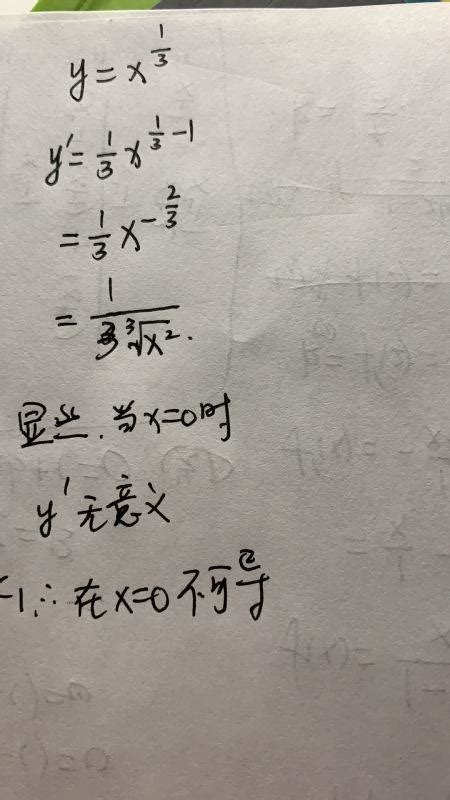 y = x^{1/3}
y' = 1/3 x^{1/3 - 1}
= 1/3 x^{-2/3}
= 1/(3∛x²).
显然.当x=0时
y'无意义
-1 ∴在x=0不可导